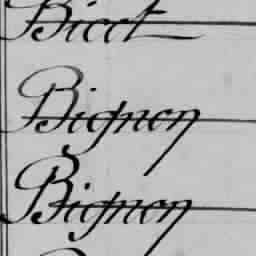 Bicet
Bignon
Bignon